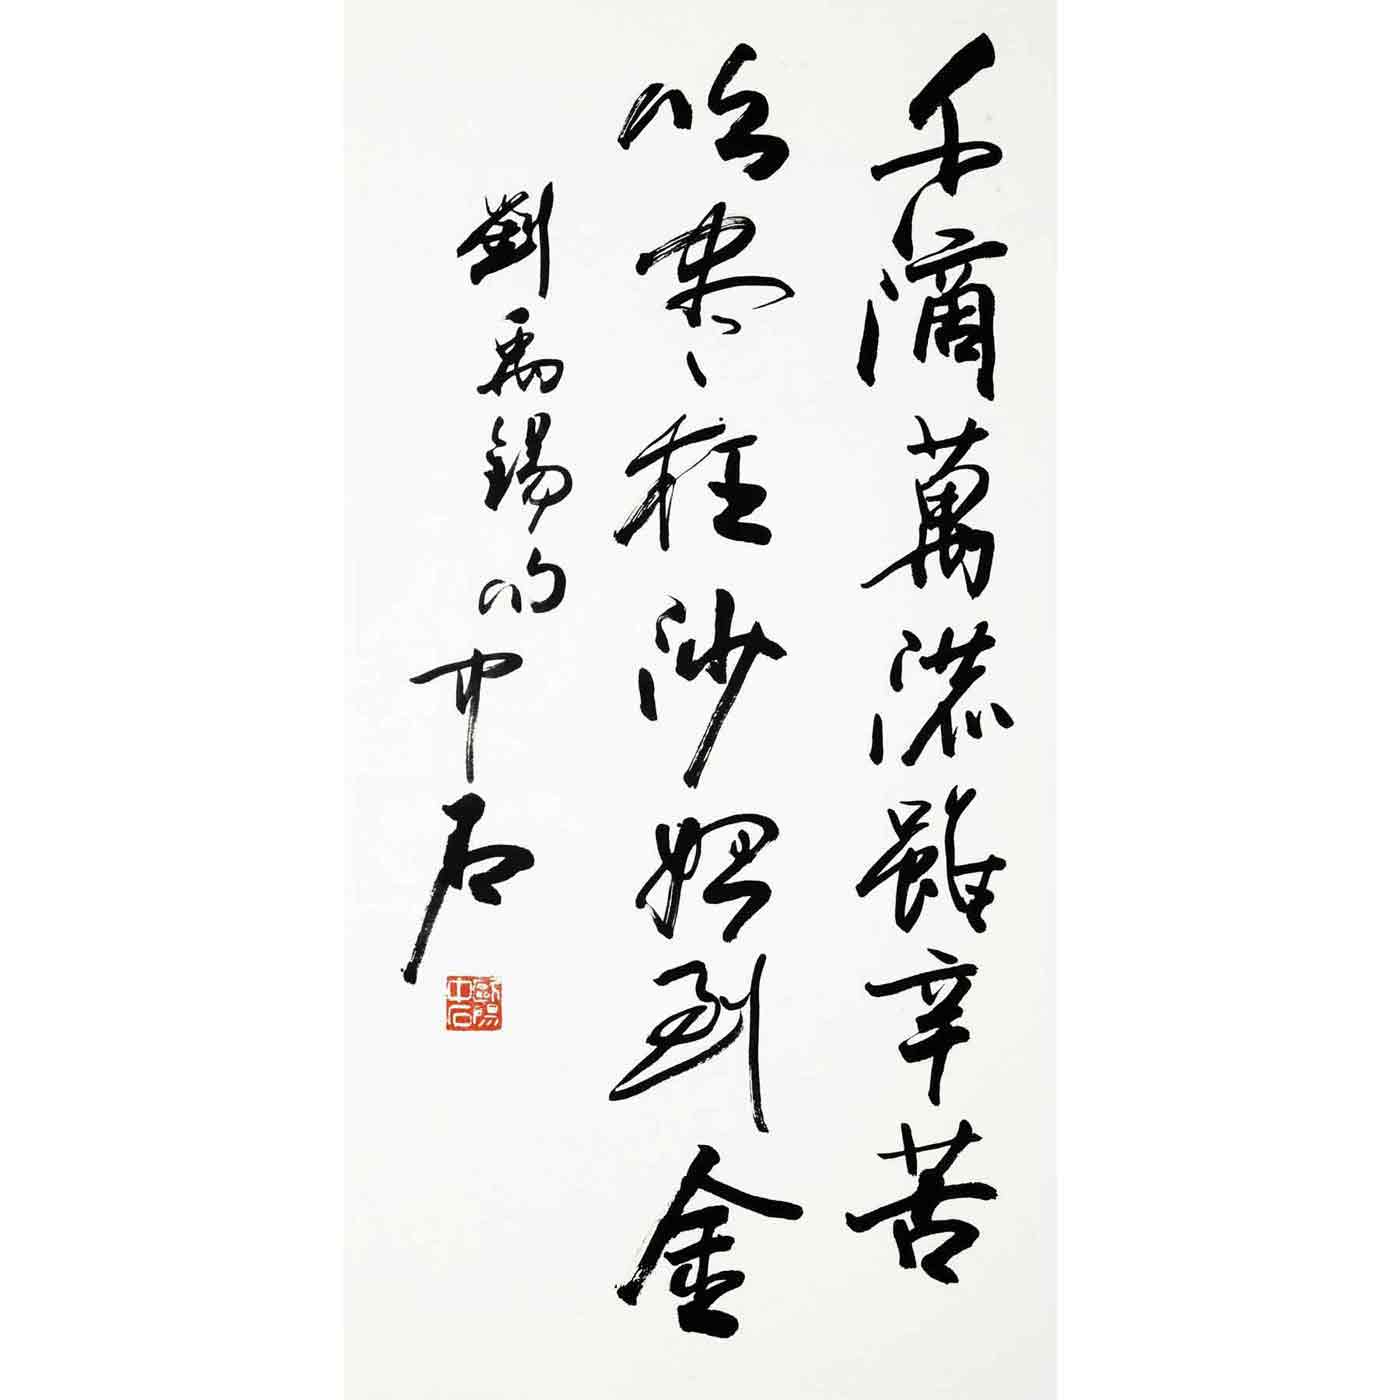 千滴萬漉雖辛苦
吹盡狂沙始到金
劉禹錫句 中石
歐陽中石